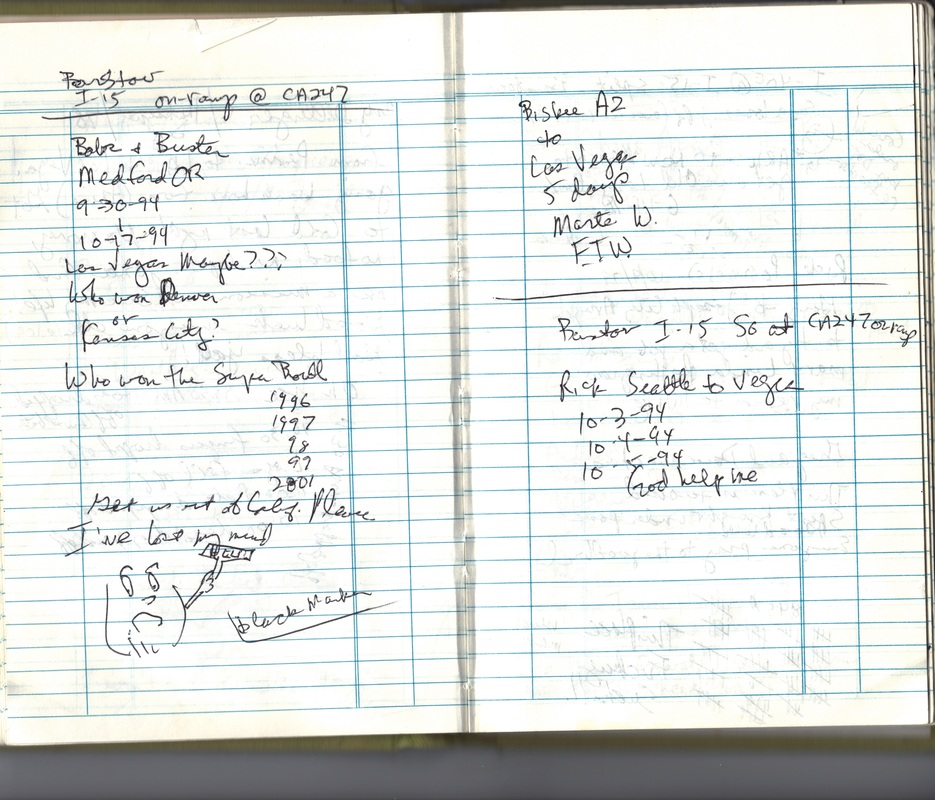 Barstow
I-15 on-ramp @ CA247
Babz & Buster
Medford OR
9-30-94
10-17-94
Las Vegas Maybe???
Who won Denver
or
Kansas City?
Who won the Super Bowl
1996
1997
98
99
2001
Get us out of Calif. Please
I've lost my mind
black Marker
Bisbee AZ
to
Las Vegas
5 days
W.
F.T.W.
Barstow I-15 So at CA247 onramp
Rick Seattle to Vegas
10-3-94
10-4-94
10-5-94
God help me